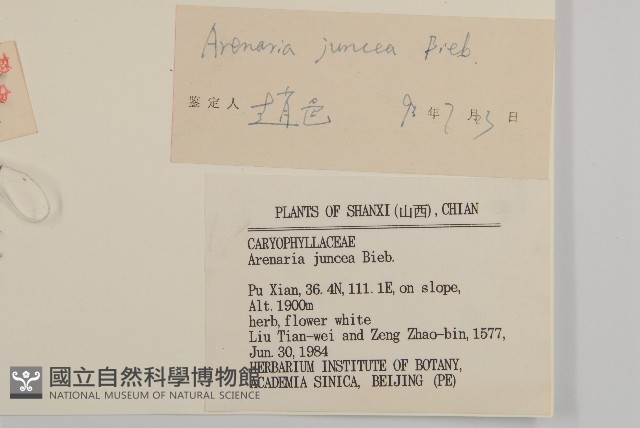 Arenaria juncea Bieb.
鉴定人 93年7月 日
PLANTS OF SHANXI(山西), CHIAN
CARYOPHYLLACEAE
Arenaria juncea Bieb.
Pu Xian, 36. 4N, 111. 1E, on slope,
Alt. 1900m
herb, flower white
Liu Tian-wei and Zeng Zhao-bin, 1577,
Jun. 30, 1984
HERBARIUM INSTITUTE OF BOTANY,
ACADEMIA SINICA, BEIJING (PE)
國立自然科學博物館
NATIONAL MUSEUM OF NATURAL SCIENCE